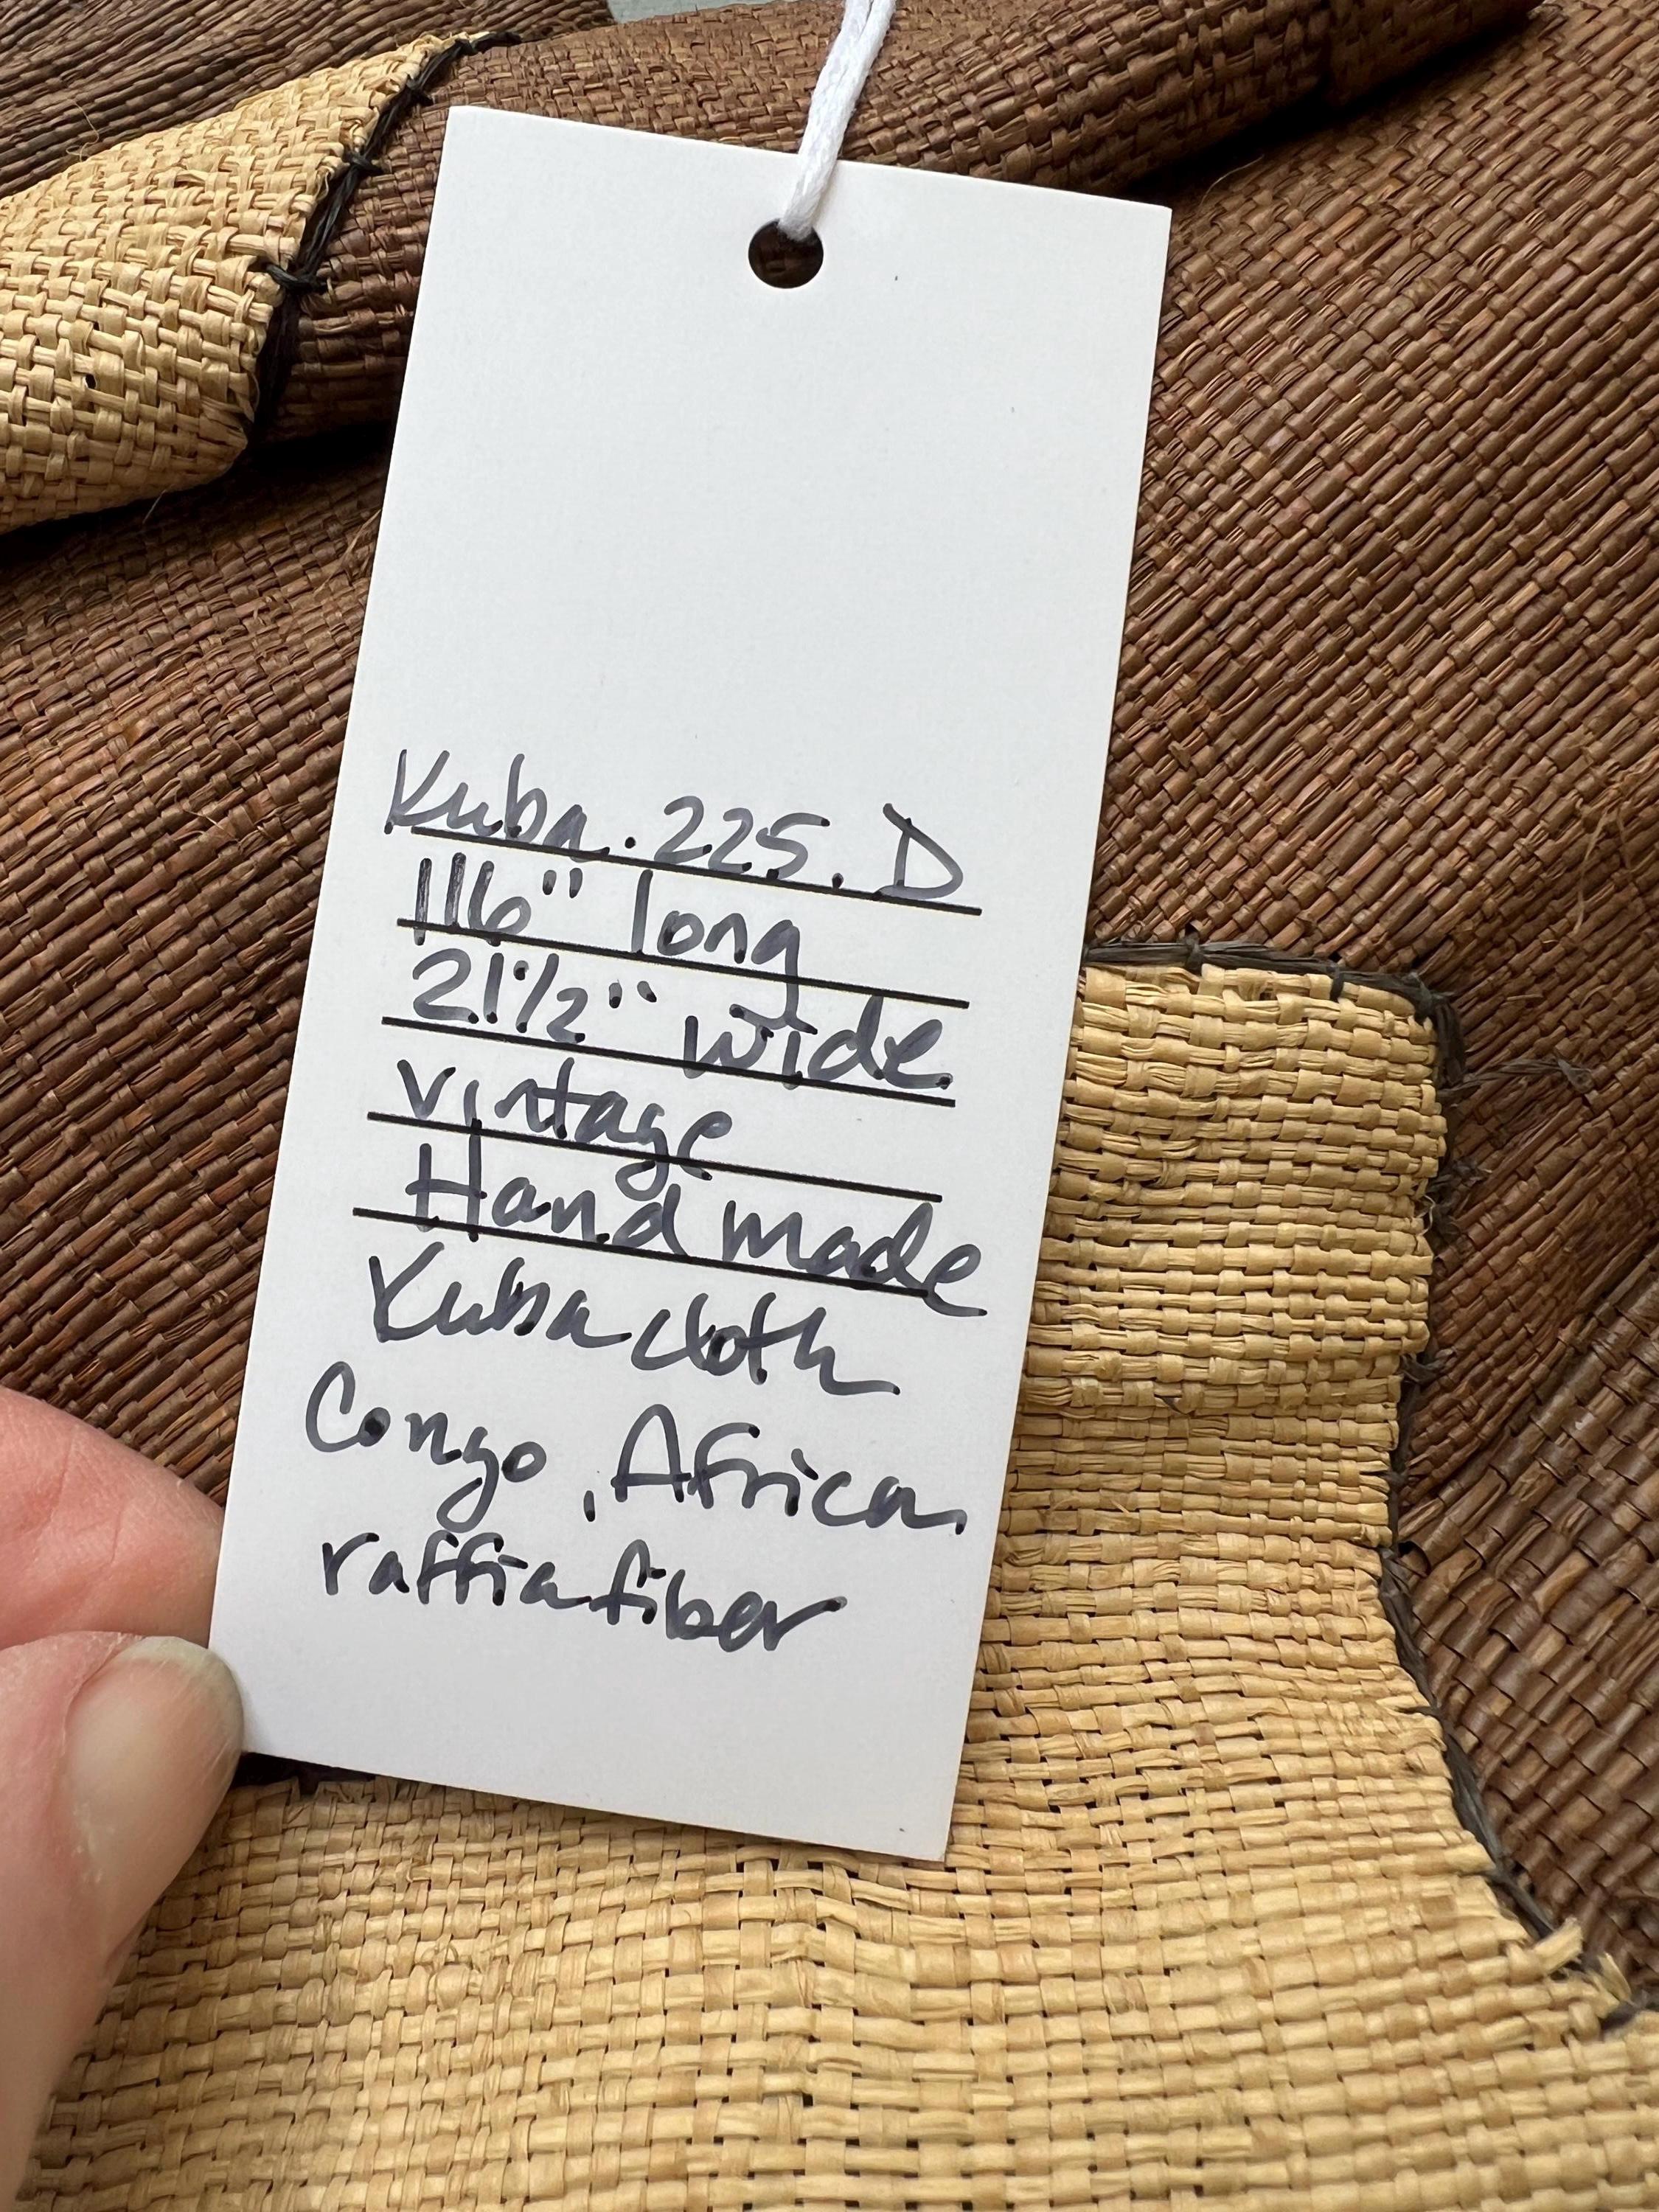 Kuba.225.D
116" long
21½" wide
vintage
Handmade
Kuba cloth
Congo, Africa
raffia fiber